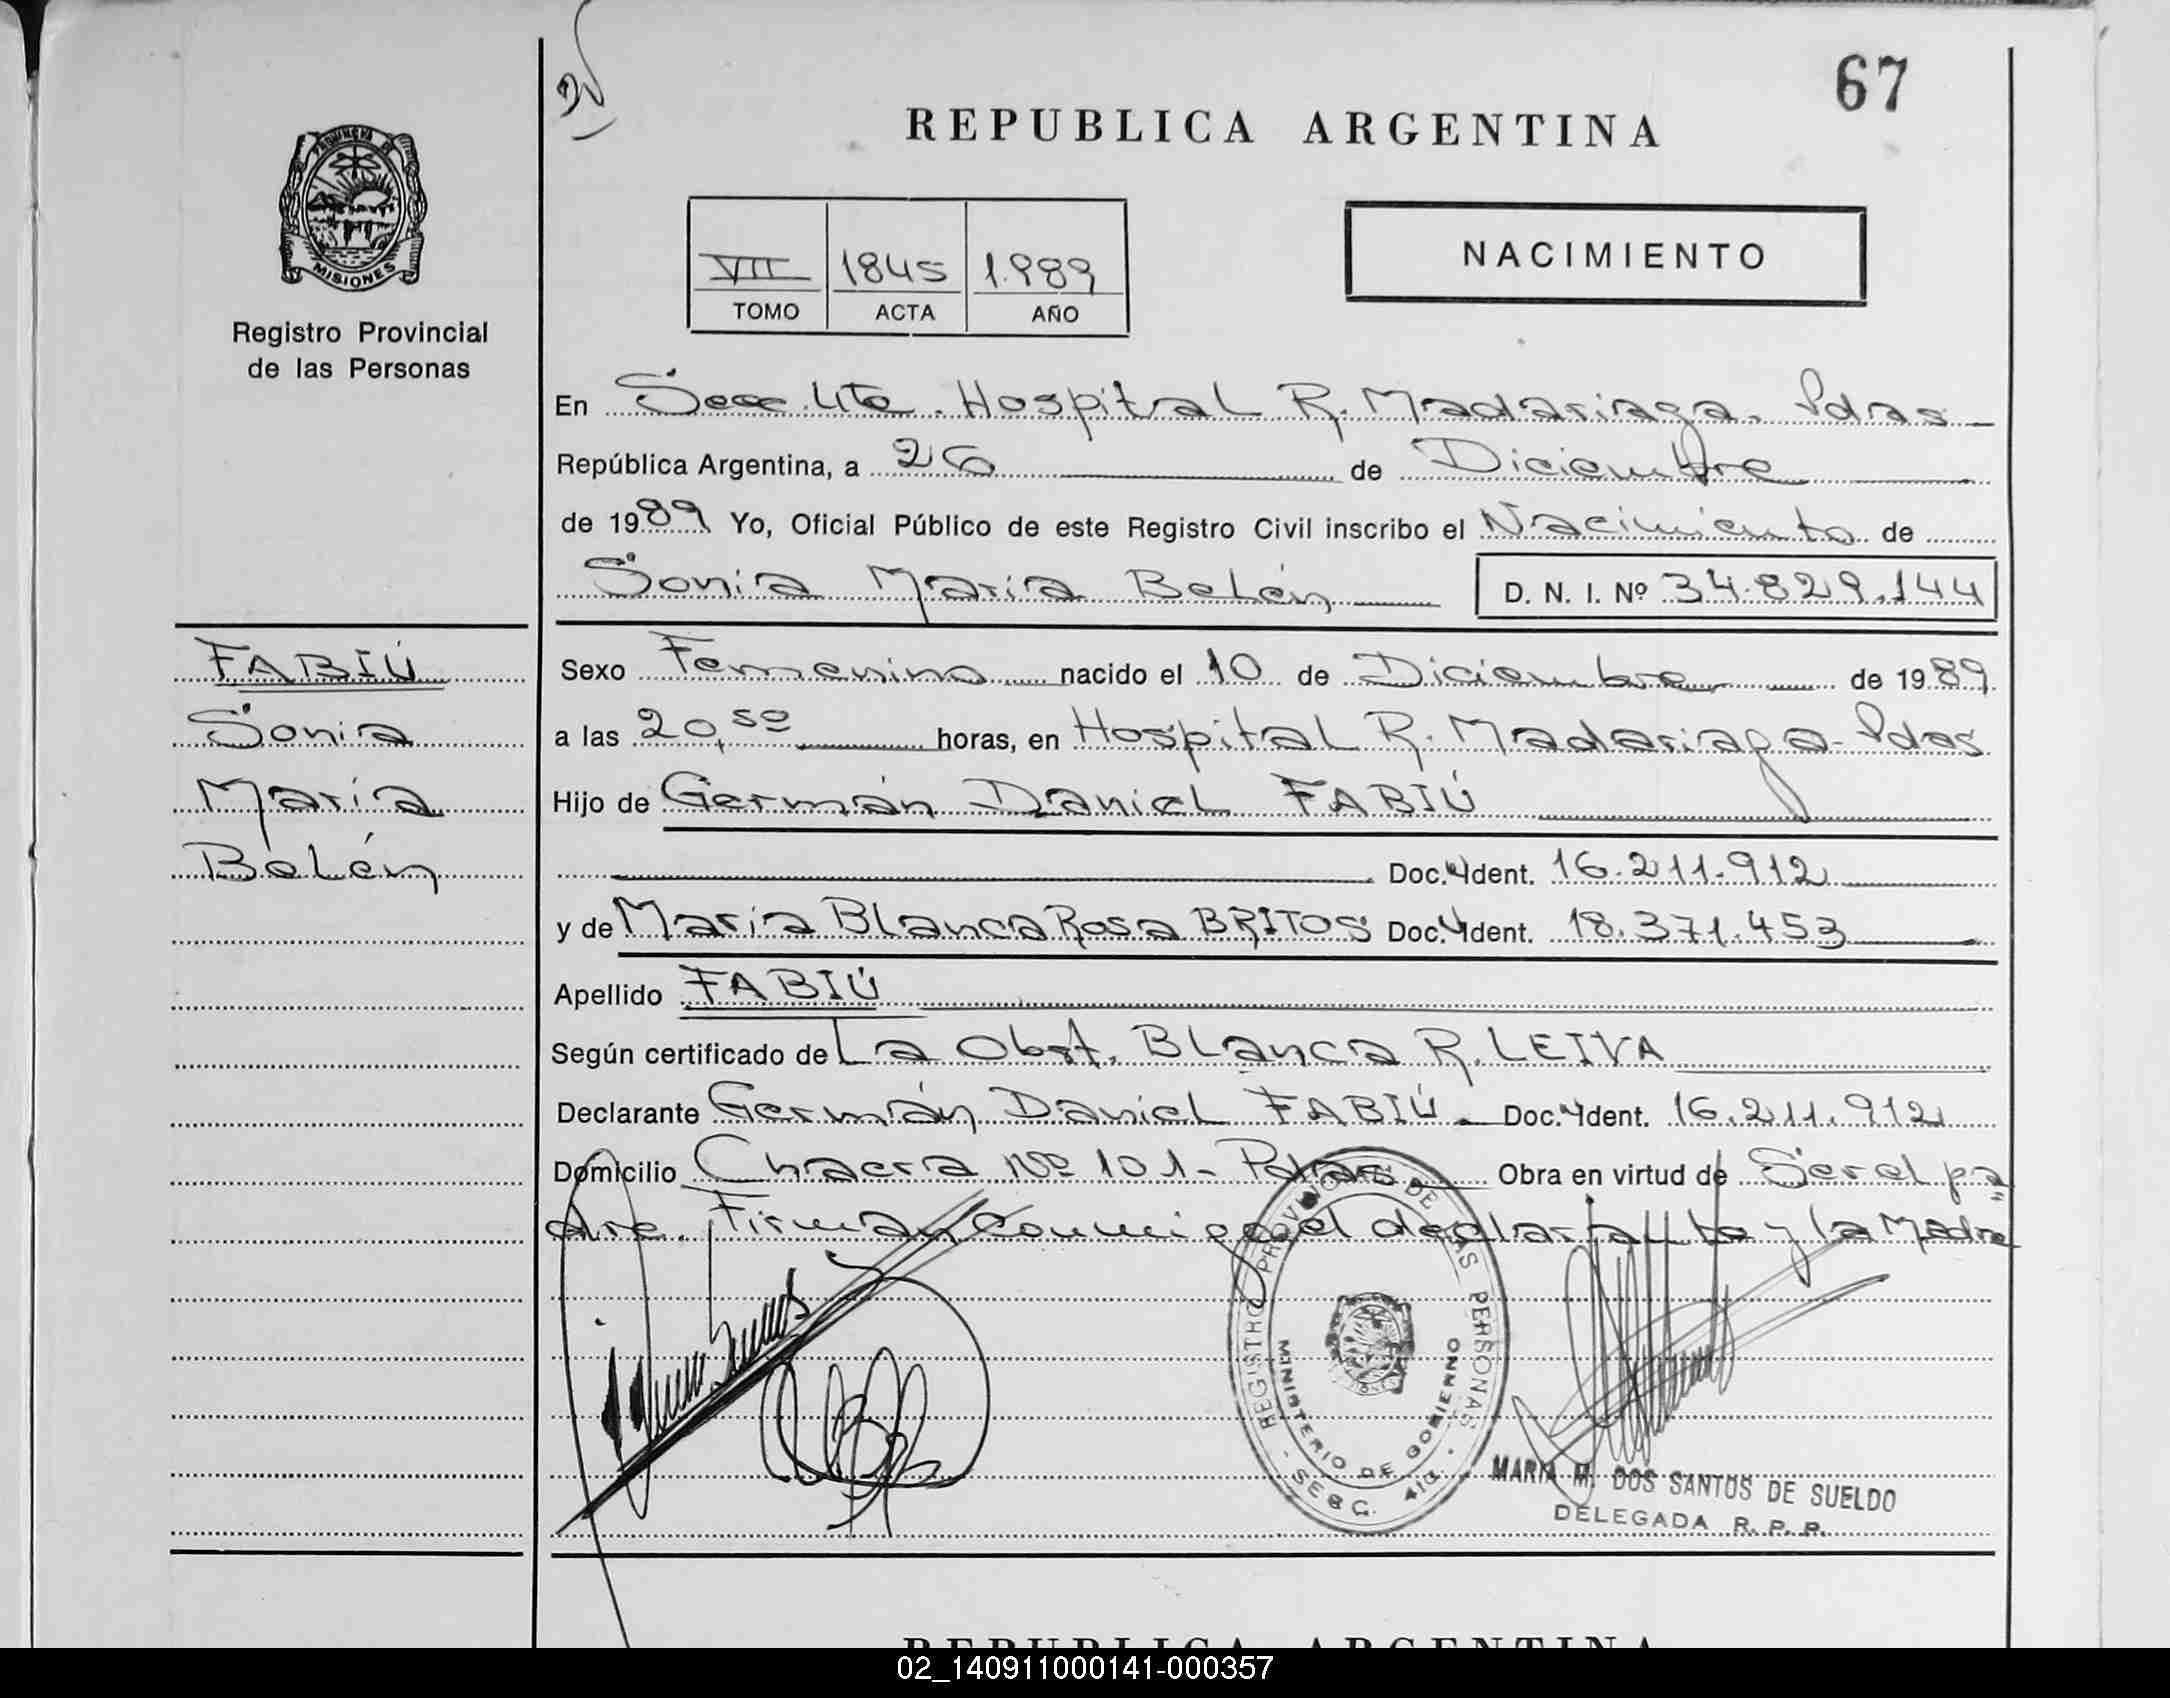 67
REPUBLICA ARGENTINA
PROVINCIA DE
MISIONES
Registro Provincial
de las Personas
VII 1845 1.989
TOMO ACTA AÑO
NACIMIENTO
En Secc. 4ta. Hospital R. Madariaga. Pdas
República Argentina, a 26 de Diciembre
de 1989 Yo, Oficial Público de este Registro Civil inscribo el Nacimiento de
Sonia María Belén D. N. I. Nº 34.829.144
FABIÚ
Sonia
María
Belén
Sexo Femenino nacido el 10 de Diciembre de 1989
a las 20,50 horas, en Hospital R. Madariaga - Pdas
Hijo de Germán Daniel FABIÚ
Doc. Ident. 16.211.912
y de María Blanca Rosa BRITOS Doc. Ident. 18.371.453
Apellido FABIÚ
Según certificado de La Obst. Blanca R. LEIVA
Declarante Germán Daniel FABIÚ. Doc. Ident. 16.211.912
Domicilio Chacra Nº 101 - Pdas. Obra en virtud de Ser el pa
dre. Firman conmigo el declarante y la Madre
REGISTRO PROVINCIAL DE LAS PERSONAS
MINISTERIO DE GOBIERNO
MARIA M. DOS SANTOS DE SUELDO
DELEGADA R. P. P.
REPUBLICA ARGENTINA
02_140911000141-000357